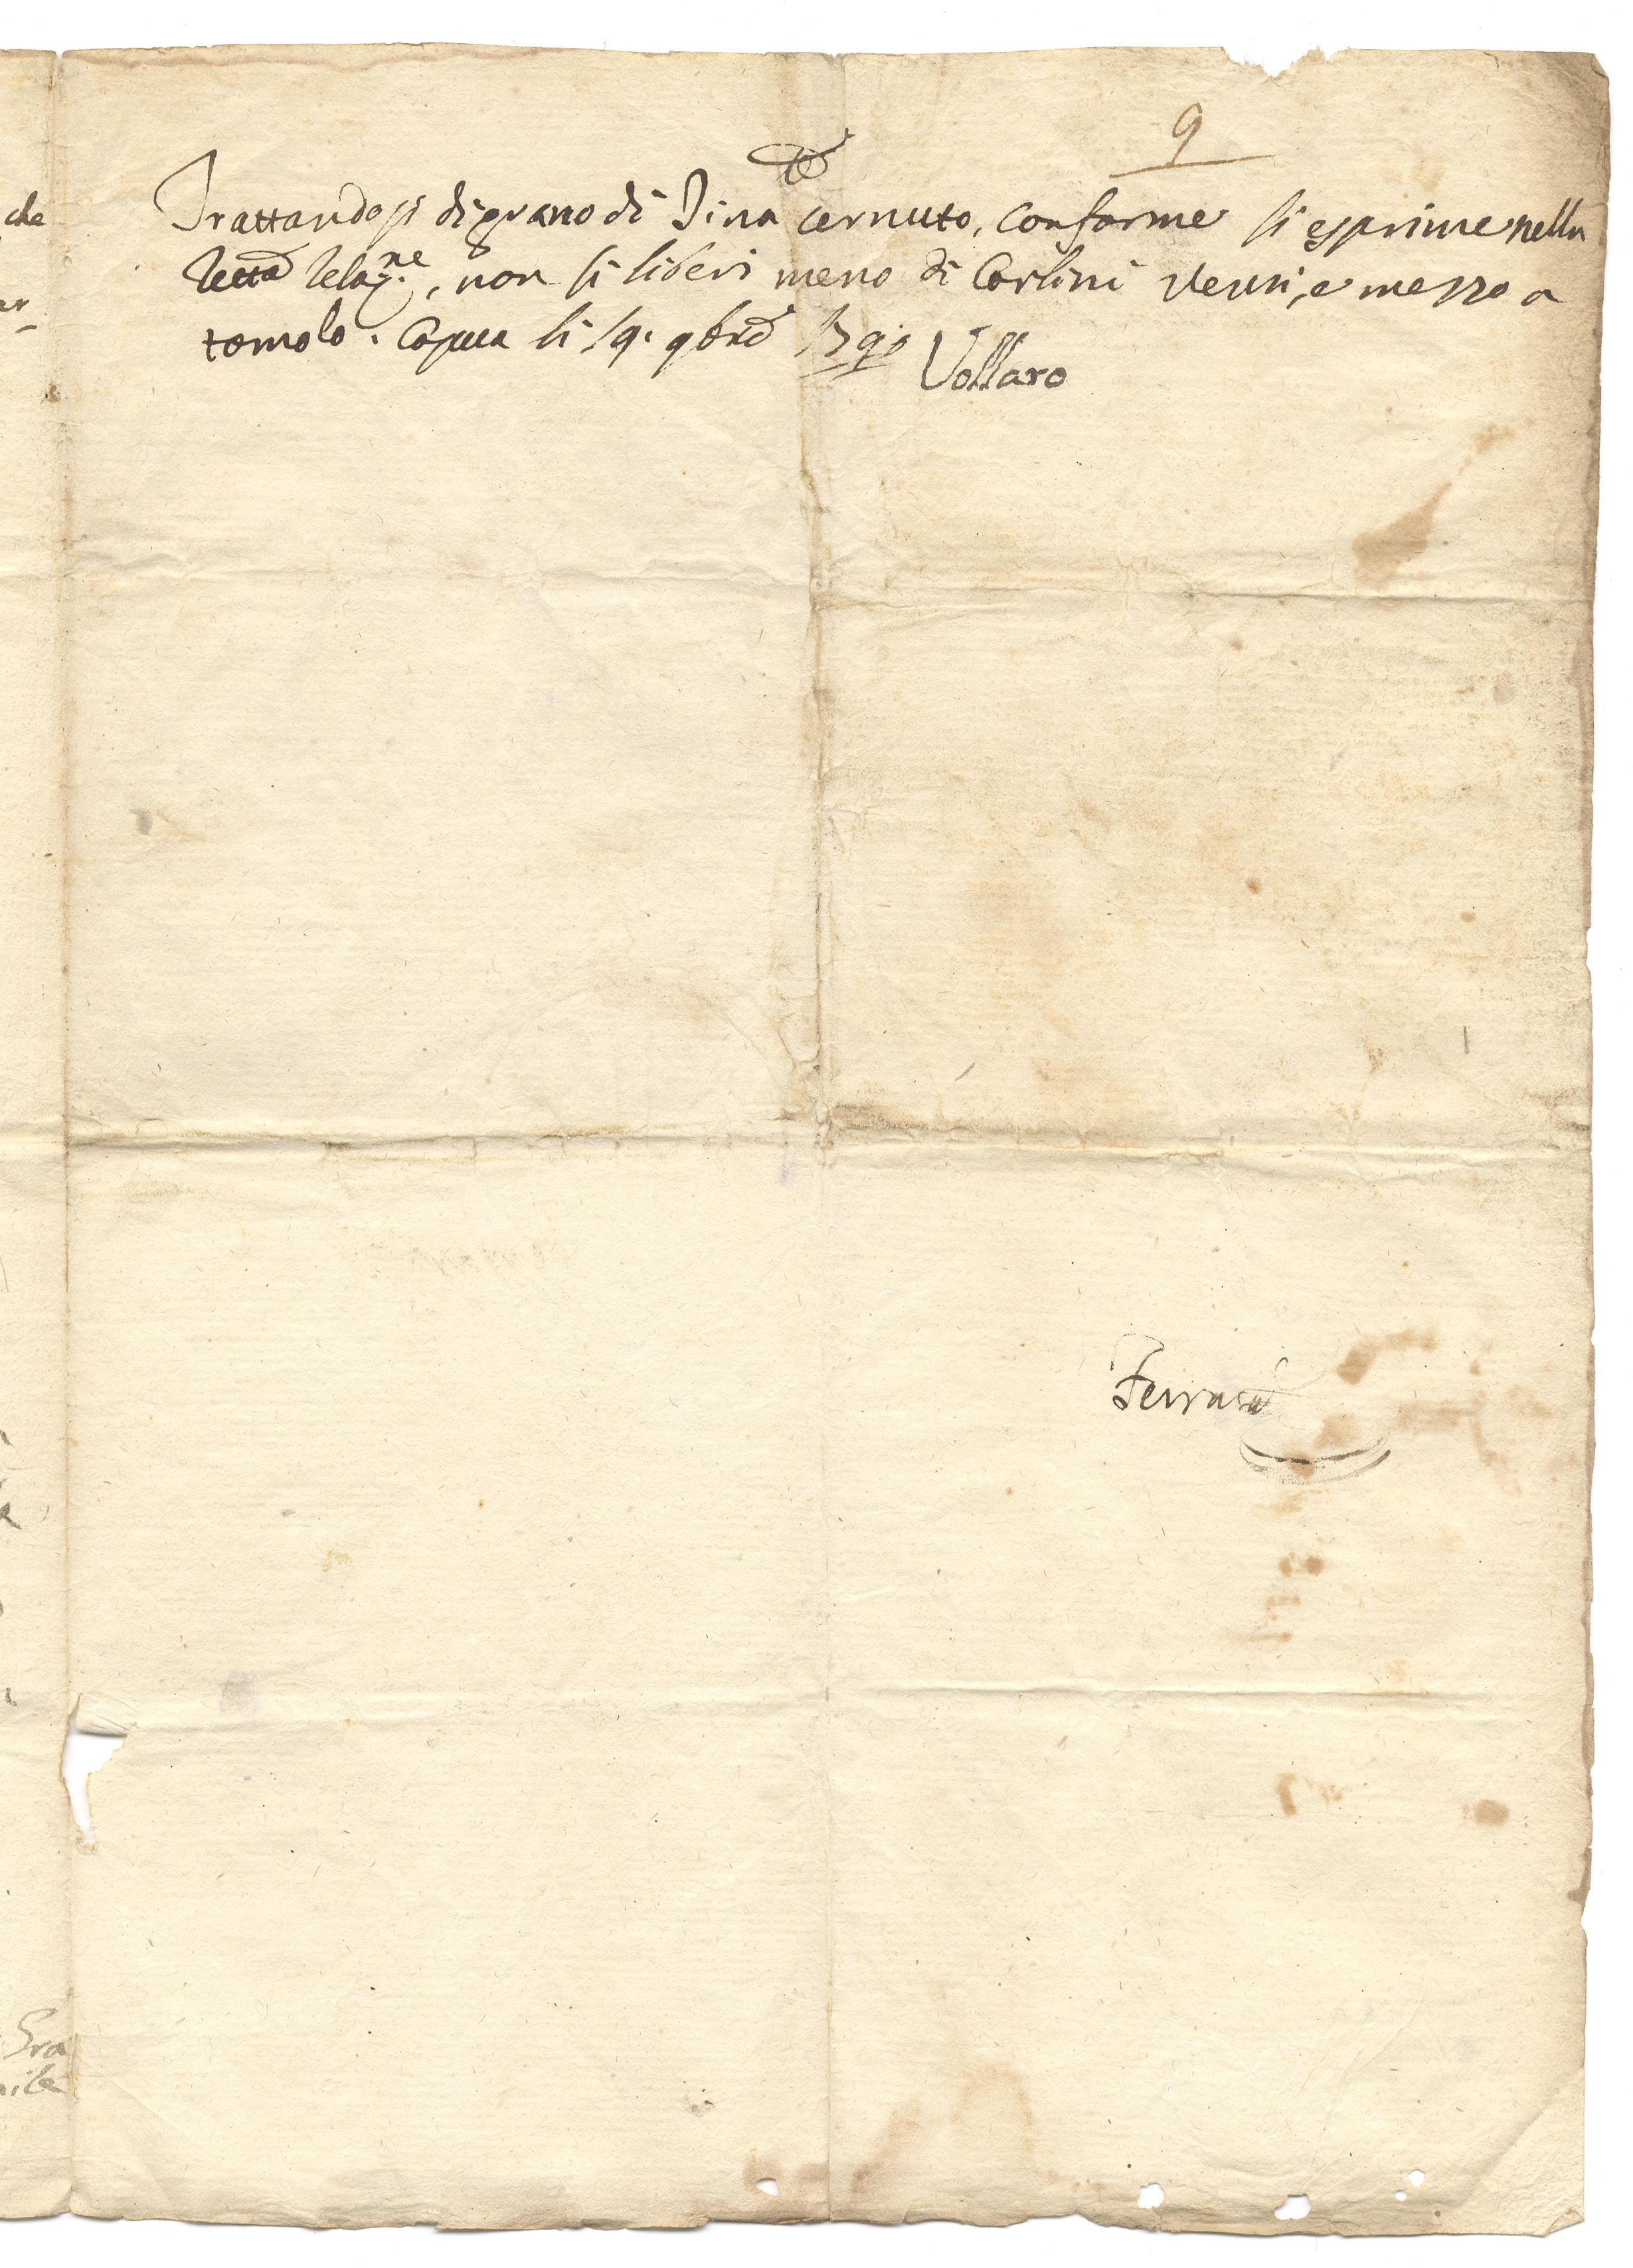 9
Trattandosi di grano di Iina cernuto, conforme si esprime nella
rettã Relaz.ne, non si liberi meno di Carlini e mezzo a
tomolo. Capua li 19. 9brẽ
Vollaro
Ferrara
che
Gra